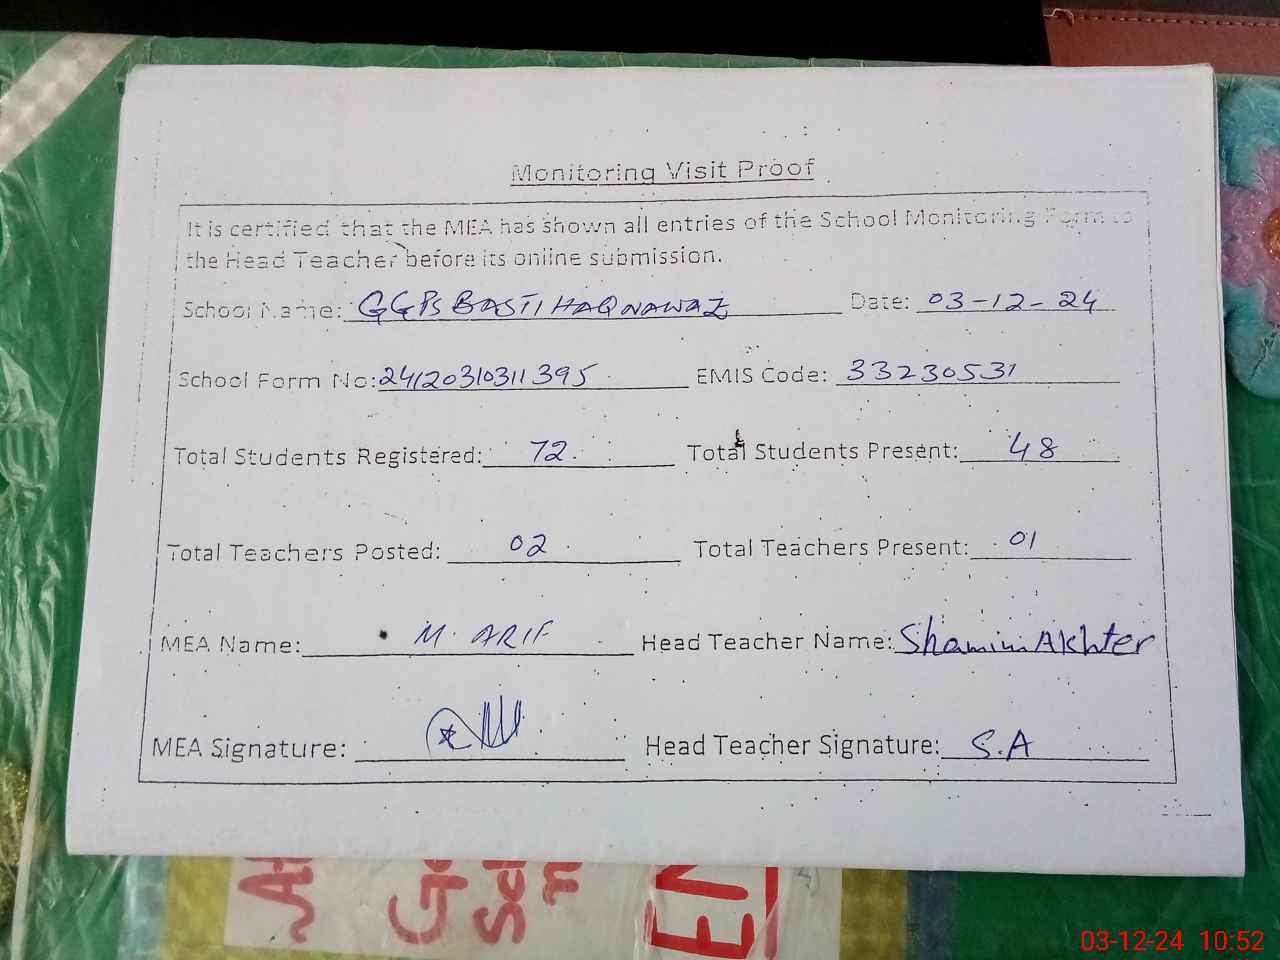 Monitoring Visit Proof
It is certified that the MEA has shown all entries of the School Monitoring Form to
the Head Teacher before its online submission.
School Name: GGPS BASTI HAQNAWAZ Date: 03-12-24
School Form No: 24120310311395 EMIS Code: 33230531
Total Students Registered: 72 Total Students Present: 48
Total Teachers Posted: 02 Total Teachers Present: 01
MEA Name: M. ARIF Head Teacher Name: Shamim Akhter
MEA Signature: Head Teacher Signature: S.A
03-12-24 10:52